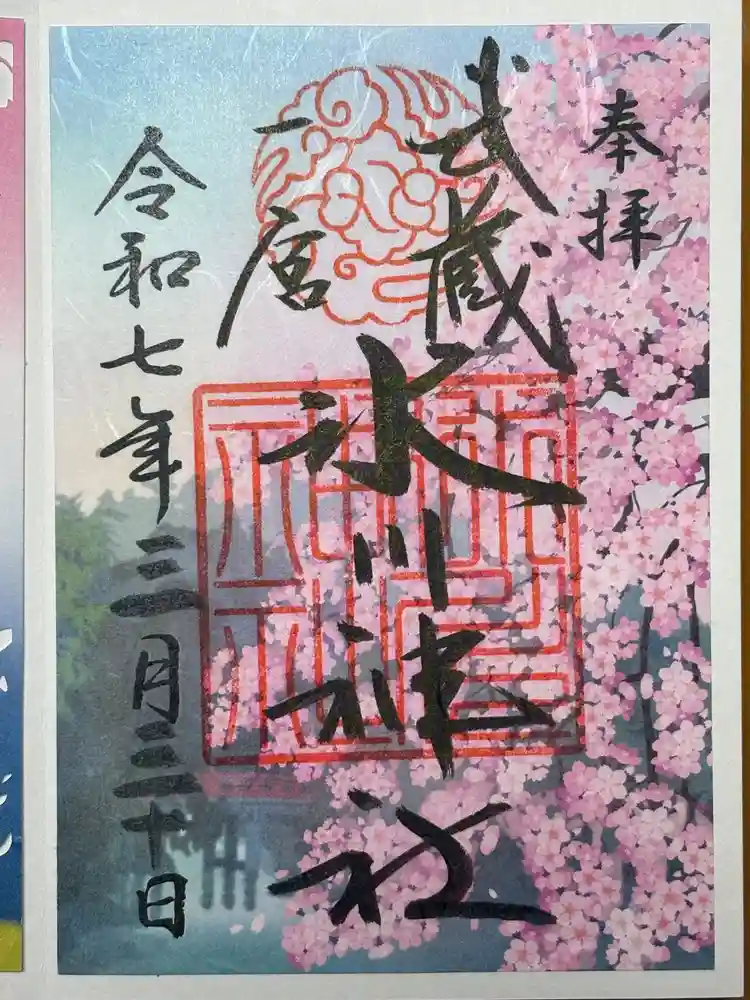 奉拝
武蔵
一宮
氷川神社
令和七年三月三十日